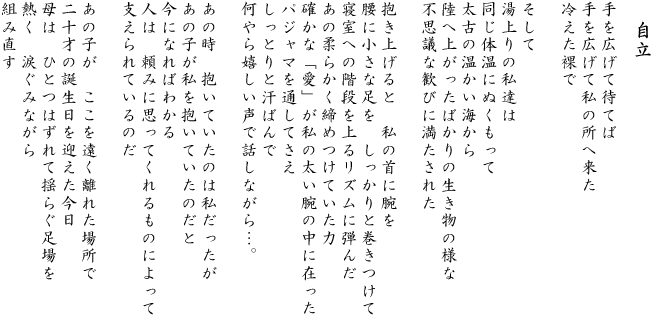 自立
手を広げて待てば
手を広げて私の所へ来た
冷えた裸で
そして
湯上りの私達は
同じ体温にぬくもって
太古の温かい海から
陸へ上がったばかりの生き物の様な
不思議な歓びに満たされた
抱き上げると　私の首に腕を
腰に小さな足を　しっかりと巻きつけて
寝室への階段を上るリズムに弾んだ
あの柔らかく締めつけていた力
確かな「愛」が私の太い腕の中に在った
パジャマを通してさえ
しっとりと汗ばんで
何やら嬉しい声で話しながら…。
あの時　抱いていたのは私だったが
あの子が私を抱いていたのだと
今になればわかる
人は　頼みに思ってくれるものによって
支えられているのだ
あの子が　ここを遠く離れた場所で
二十才の誕生日を迎えた今日
母は　ひとつはずれて揺らぐ足場を
熱く　涙ぐみながら
組み直す